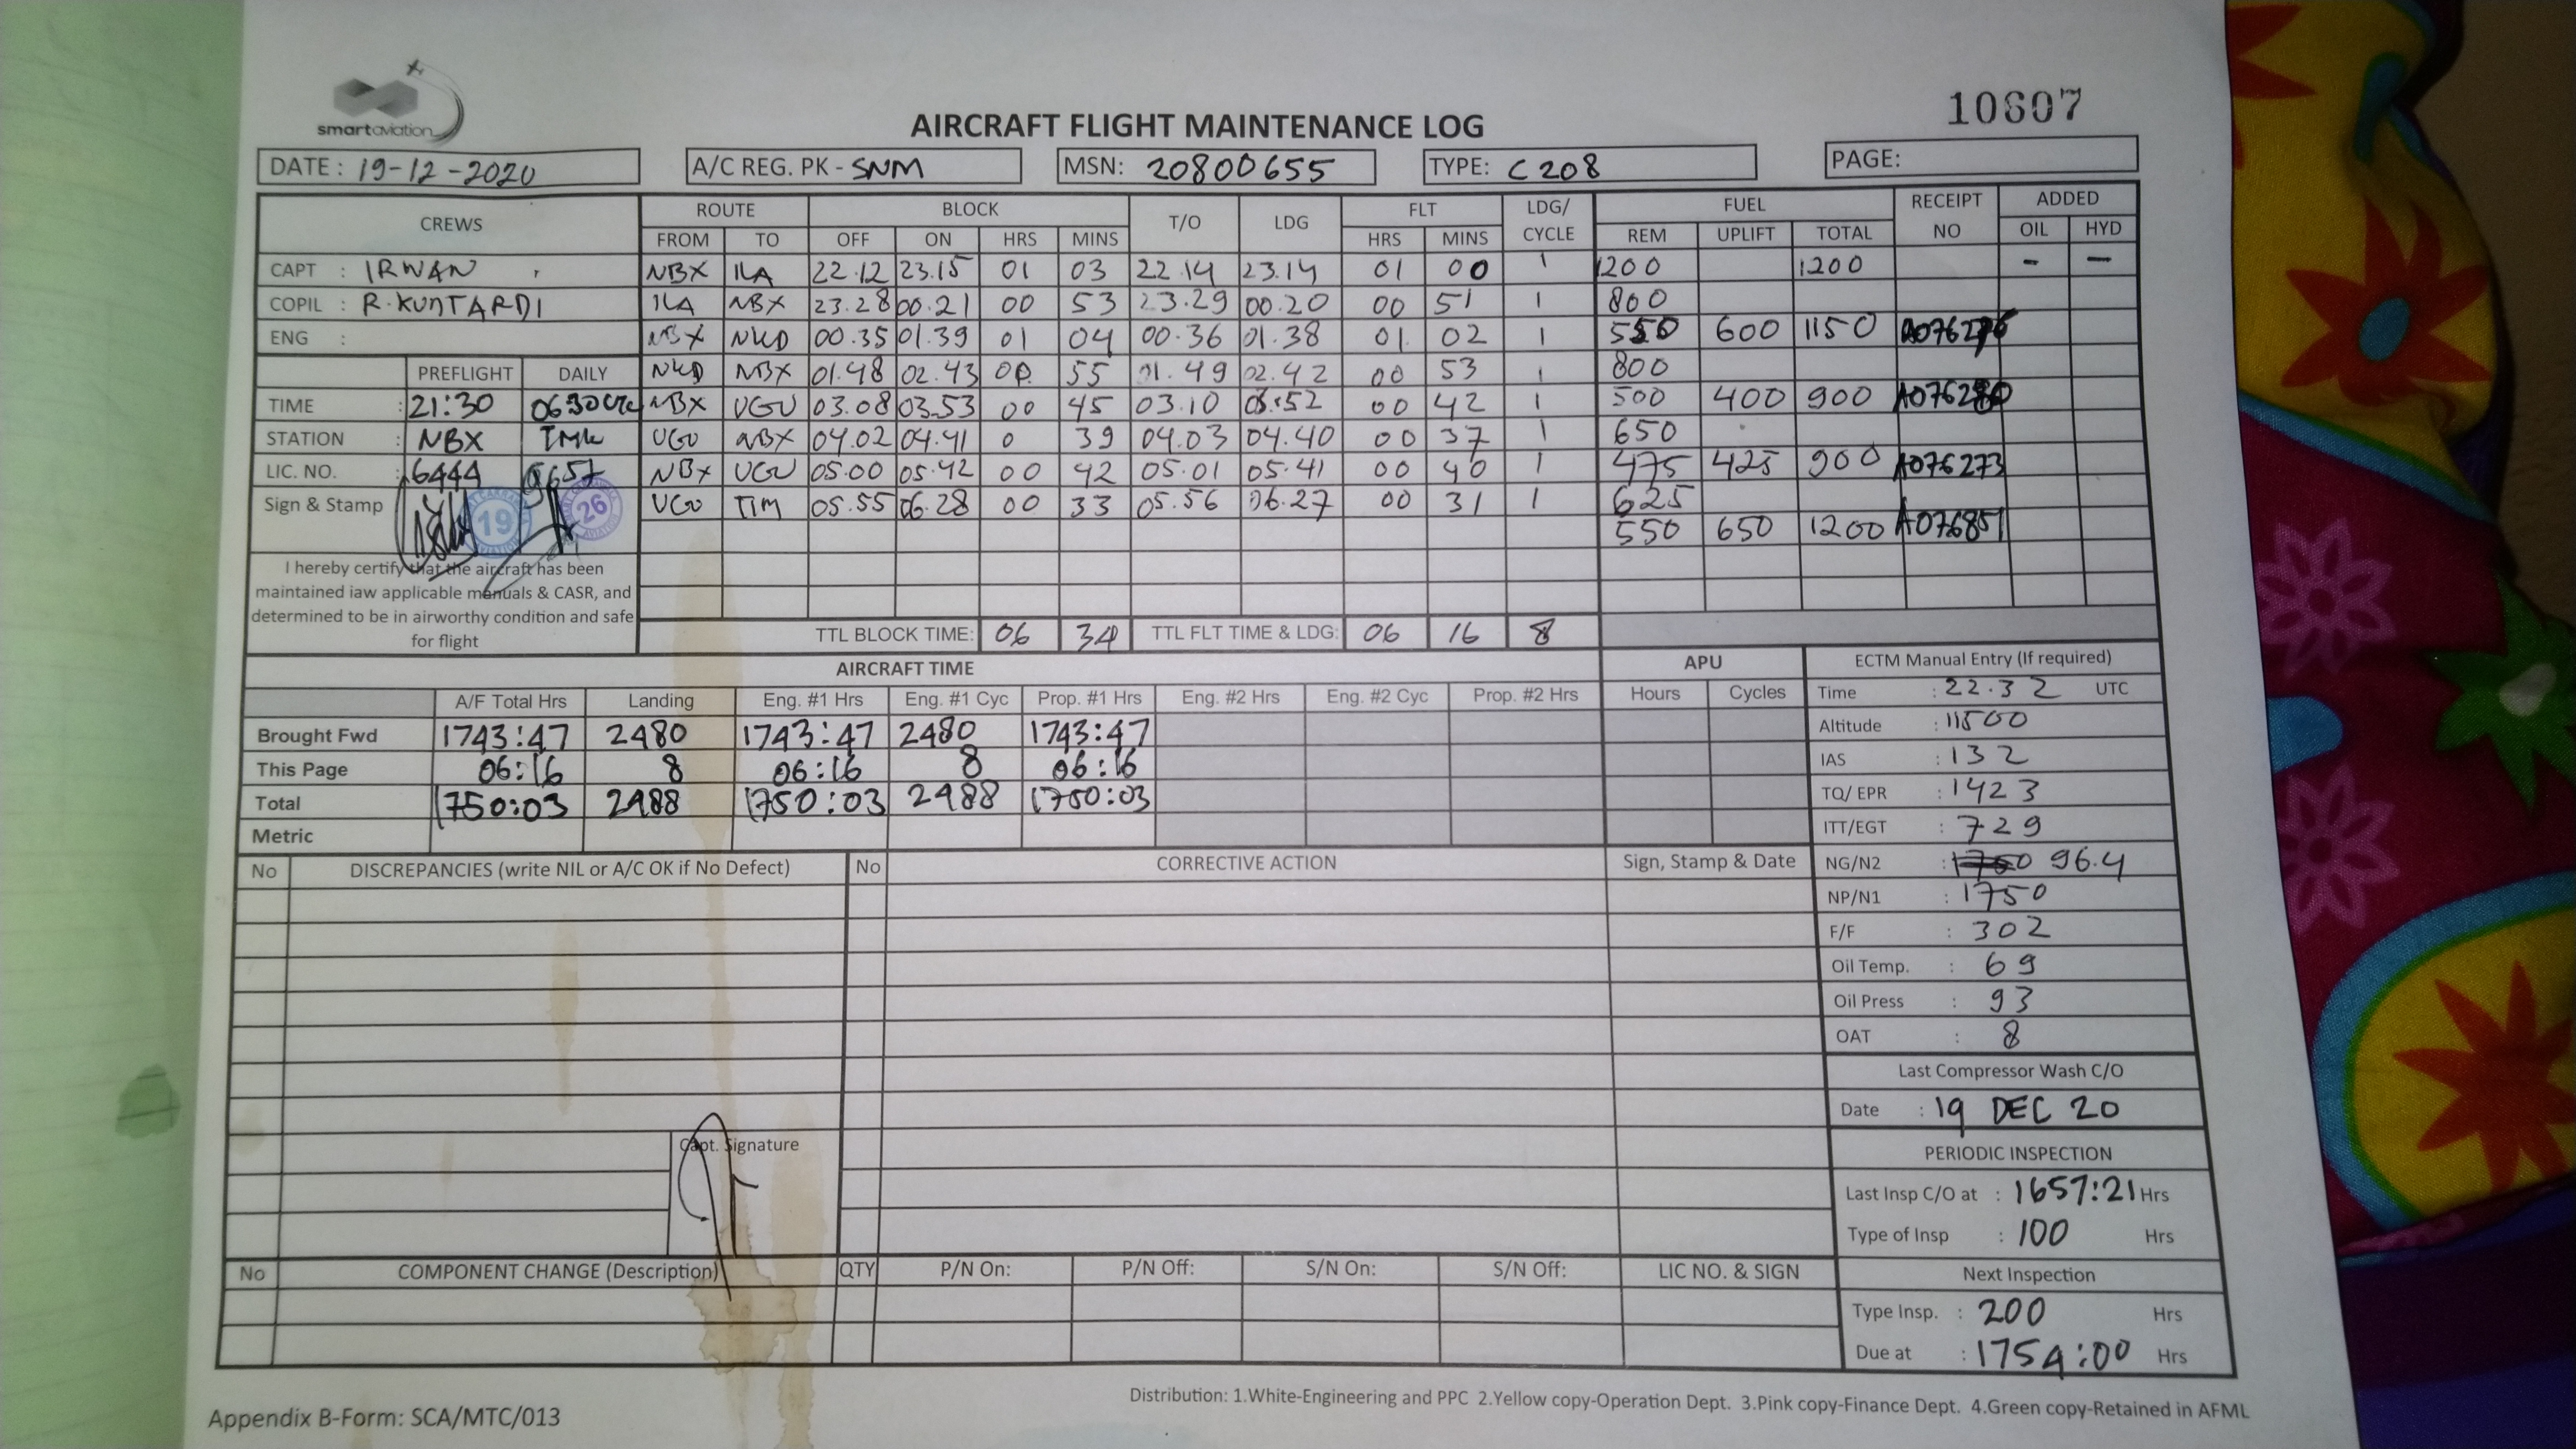 smartaviation
10607
AIRCRAFT FLIGHT MAINTENANCE LOG
DATE : 19-12-2020 A/C REG. PK - SNM MSN: 20800655 TYPE: C 208 PAGE:
CREWS ROUTE BLOCK T/O LDG FLT LDG/ CYCLE FUEL RECEIPT NO ADDED
FROM TO OFF ON HRS MINS HRS MINS REM UPLIFT TOTAL OIL HYD
CAPT : IRWAN NBX ILA 22.12 23.15 01 03 22.14 23.14 01 00 1 1200 1200 - -
COPIL : R.KUNTARDI ILA NBX 23.28 00.21 00 53 23.29 00.20 00 51 1 800
ENG : NBX NKD 00.35 01.39 01 04 00.36 01.38 01. 02 1 550 600 1150
PREFLIGHT DAILY NKD NBX 01.48 02.43 00 55 01.49 02.42 00 53 1 800
TIME : 21:30 0630 NBX UGU 03.08 03.53 00 45 03.10 03.52 00 42 1 500 400 900 A076280
STATION : NBX TMK UGU NBX 04.02 04.41 0 39 04.03 04.40 00 37 1 650
LIC. NO. : 6444 9657 NBX UGU 05.00 05.42 00 42 05.01 05.41 00 40 1 475 425 900 A076273
Sign & Stamp 19 26 UGU TIM 05.55 06.28 00 33 05.56 06.27 00 31 1 625
550 650 1200 A076851
I hereby certify that the aircraft has been
maintained iaw applicable manuals & CASR, and
determined to be in airworthy condition and safe
for flight
TTL BLOCK TIME: 06 34 TTL FLT TIME & LDG: 06 16 8
AIRCRAFT TIME APU ECTM Manual Entry (If required)
A/F Total Hrs Landing Eng. #1 Hrs Eng. #1 Cyc Prop. #1 Hrs Eng. #2 Hrs Eng. #2 Cyc Prop. #2 Hrs Hours Cycles Time : 22.32 UTC
Brought Fwd 1743:47 2480 1743:47 2480 1743:47 Altitude : 11500
This Page 06:16 8 06:16 8 06:16 IAS : 132
Total 1750:03 2488 1750:03 2488 1750:03 TQ/ EPR : 1423
Metric ITT/EGT : 729
No DISCREPANCIES (write NIL or A/C OK if No Defect) No CORRECTIVE ACTION Sign, Stamp & Date NG/N2 : 1750 96.4
NP/N1 : 1750
F/F : 302
Oil Temp. : 69
Oil Press : 93
OAT : 8
Last Compressor Wash C/O
Date : 19 DEC 20
Capt. Signature
PERIODIC INSPECTION
Last Insp C/O at : 1657:21 Hrs
Type of Insp : 100 Hrs
No COMPONENT CHANGE (Description) QTY P/N On: P/N Off: S/N On: S/N Off: LIC NO. & SIGN Next Inspection
Type Insp. : 200 Hrs
Due at : 1754:00 Hrs
Distribution: 1.White-Engineering and PPC 2.Yellow copy-Operation Dept. 3.Pink copy-Finance Dept. 4.Green copy-Retained in AFML
Appendix B-Form: SCA/MTC/013